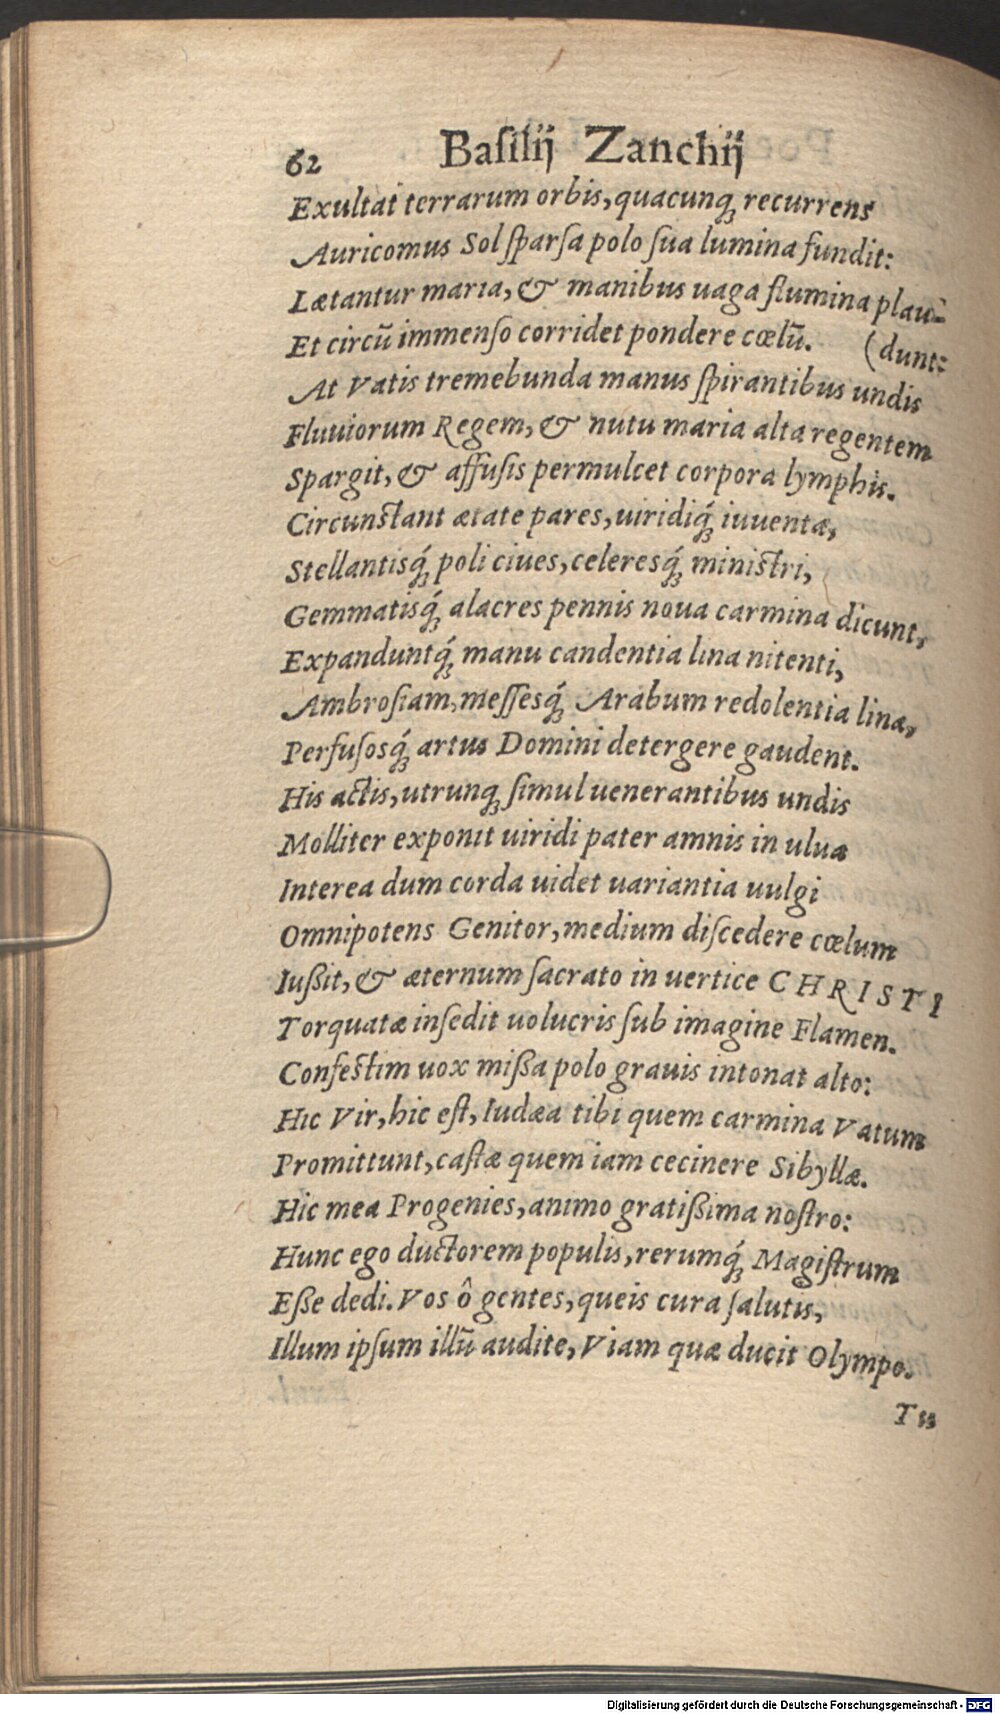 62 Basilij Zanchij
Exultat terrarum orbis, quacunq; recurrens
Auricomus Sol sparsa polo sua lumina fundit:
Lætantur maria, & manibus uaga flumina plau-
Et circū immenso corridet pondere cœlū. (dunt:
At Vatis tremebunda manus spirantibus undis
Fluuiorum Regem, & nutu maria alta regentem
Spargit, & affusis permulcet corpora lymphis.
Circunstant ætate pares, uiridiq́; iuuentæ,
Stellantisq́; poli ciues, celeresq́; ministri,
Gemmatisq́; alacres pennis noua carmina dicunt,
Expanduntq́; manu candentia lina nitenti,
Ambrosiam, messesq́; Arabum redolentia lina,
Perfusosq́; artus Domini detergere gaudent.
His actis, utrunq; simul uenerantibus undis
Molliter exponit uiridi pater amnis in ulua
Interea dum corda uidet uariantia uulgi
Omnipotens Genitor, medium discedere cœlum
Iußit, & æternum sacrato in uertice CHRISTI
Torquatæ insedit uolucris sub imagine Flamen.
Confestim uox mißa polo grauis intonat alto:
Hic Vir, hic est, Iudæa tibi quem carmina Vatum
Promittunt, castæ quem iam cecinere Sibyllæ.
Hic mea Progenies, animo gratißima nostro:
Hunc ego ductorem populis, rerumq́; Magistrum
Eße dedi. Vos ô gentes, queis cura salutis,
Illum ipsum illū audite, Viam quæ ducit Olympo.
Tu
Digitalisierung gefördert durch die Deutsche Forschungsgemeinschaft - DFG